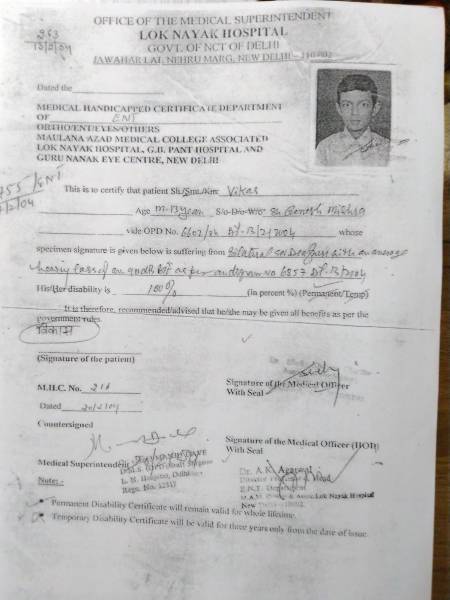 OFFICE OF THE MEDICAL SUPERINTENDENT
LOK NAYAK HOSPITAL
GOVT. OF NCT OF DELHI
JAWAHAR LAL NEHRU MARG, NEW DELHI - 110 002
263
13/2/04
Dated the
MEDICAL HANDICAPPED CERTIFICATE DEPARTMENT
OF ENT
ORTHO/ENT/EYES/OTHERS
MAULANA AZAD MEDICAL COLLEGE ASSOCIATED
LOK NAYAK HOSPITAL, G.B. PANT HOSPITAL AND
GURU NANAK EYE CENTRE, NEW DELHI
755/ENT
/2/04
This is to certify that patient Sh/Smt./Km Vikas
Age M-13 year S/o-D/o-W/o Sh Ganesh Mishra
vide OPD No. 6602/04 Dt-13/2/2004 whose
specimen signature is given below is suffering from Bilateral SN Deafness with an average
hearing loss of as per audiogram No 6857 Dt-13/2/04
His/Her disability is 100% (in percent %) (Permanent/Temp)
It is therefore, recommended/advised that he/she may be given all benefits as per the
government rules.
विकास
(Signature of the patient)
M.H.C. No. 211
Signature of the Medical Officer
With Seal
Dated 20/2/04
Countersigned
Signature of the Medical Officer (HOD)
With Seal
Medical Superintendent
L. N. Hospital, Delhi
Regn. No. 12517
Dr. A.K. Agarwal
E.N.T. Department
Lok Nayak Hospital
Note:-
Permanent Disability Certificate will remain valid for whole lifetime.
Temporary Disability Certificate will be valid for three years only from the date of issue.